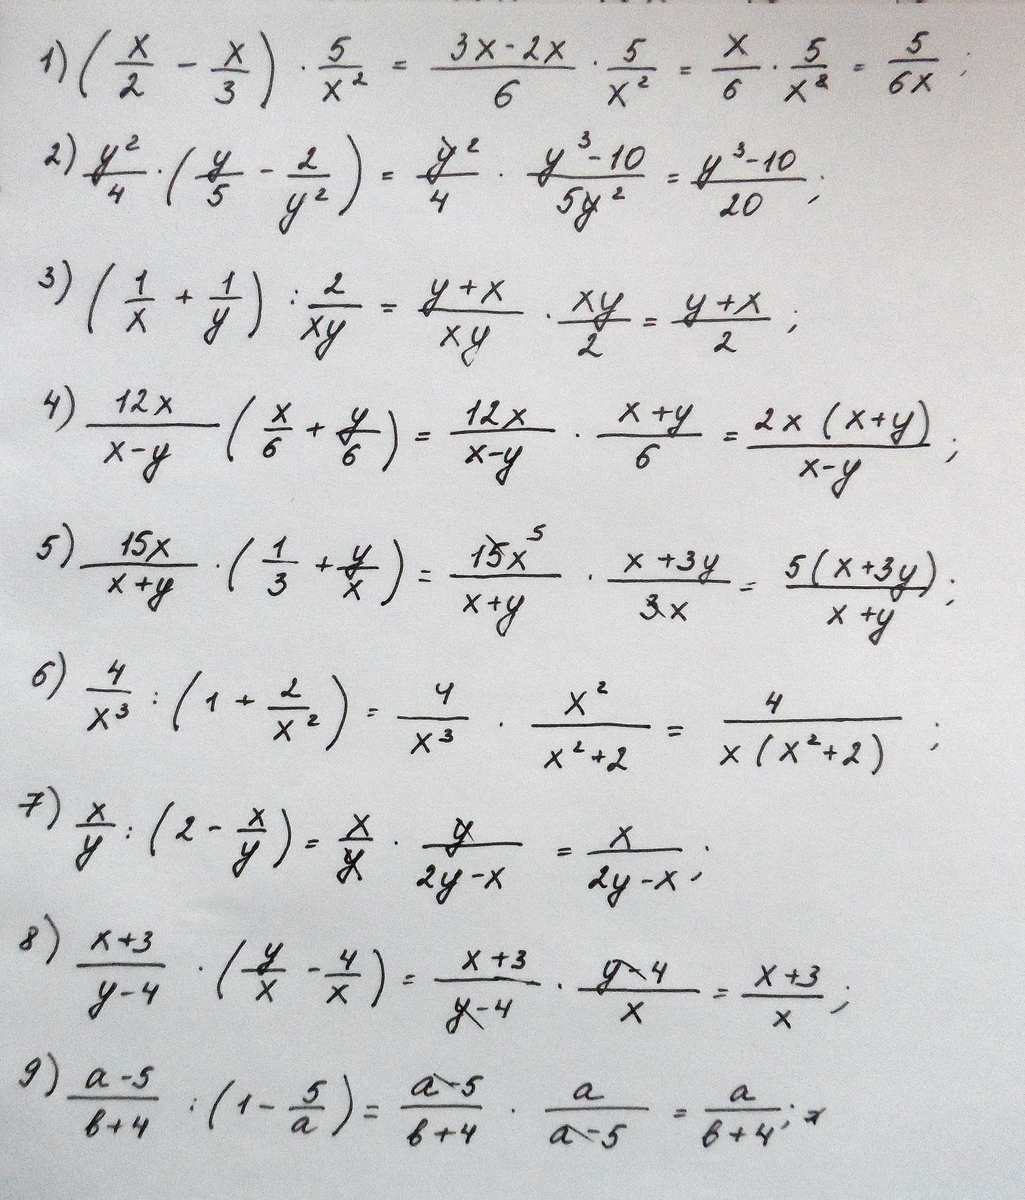 1) (x/2 - x/3) · 5/x² = (3x-2x)/6 · 5/x² = x/6 · 5/x² = 5/6x ;
2) y²/4 · (y/5 - 2/y²) = y²/4 · (y³-10)/5y² = (y³-10)/20 ;
3) (1/x + 1/y) : 2/xy = (y+x)/xy · xy/2 = (y+x)/2 ;
4) 12x/(x-y) (x/6 + y/6) = 12x/(x-y) · (x+y)/6 = 2x(x+y)/(x-y) ;
5) 15x/(x+y) · (1/3 + y/x) = 15x⁵/(x+y) · (x+3y)/3x = 5(x+3y)/(x+y) ;
6) 4/x³ : (1 + 2/x²) = 4/x³ · x²/(x²+2) = 4/x(x²+2) ;
7) x/y : (2 - x/y) = x/y · y/(2y-x) = x/(2y-x) ;
8) (x+3)/(y-4) · (y/x - 4/x) = (x+3)/(y-4) · (y-4)/x = (x+3)/x ;
9) (a-5)/(в+4) : (1 - 5/a) = (a-5)/(в+4) · a/(a-5) = a/(в+4) ;